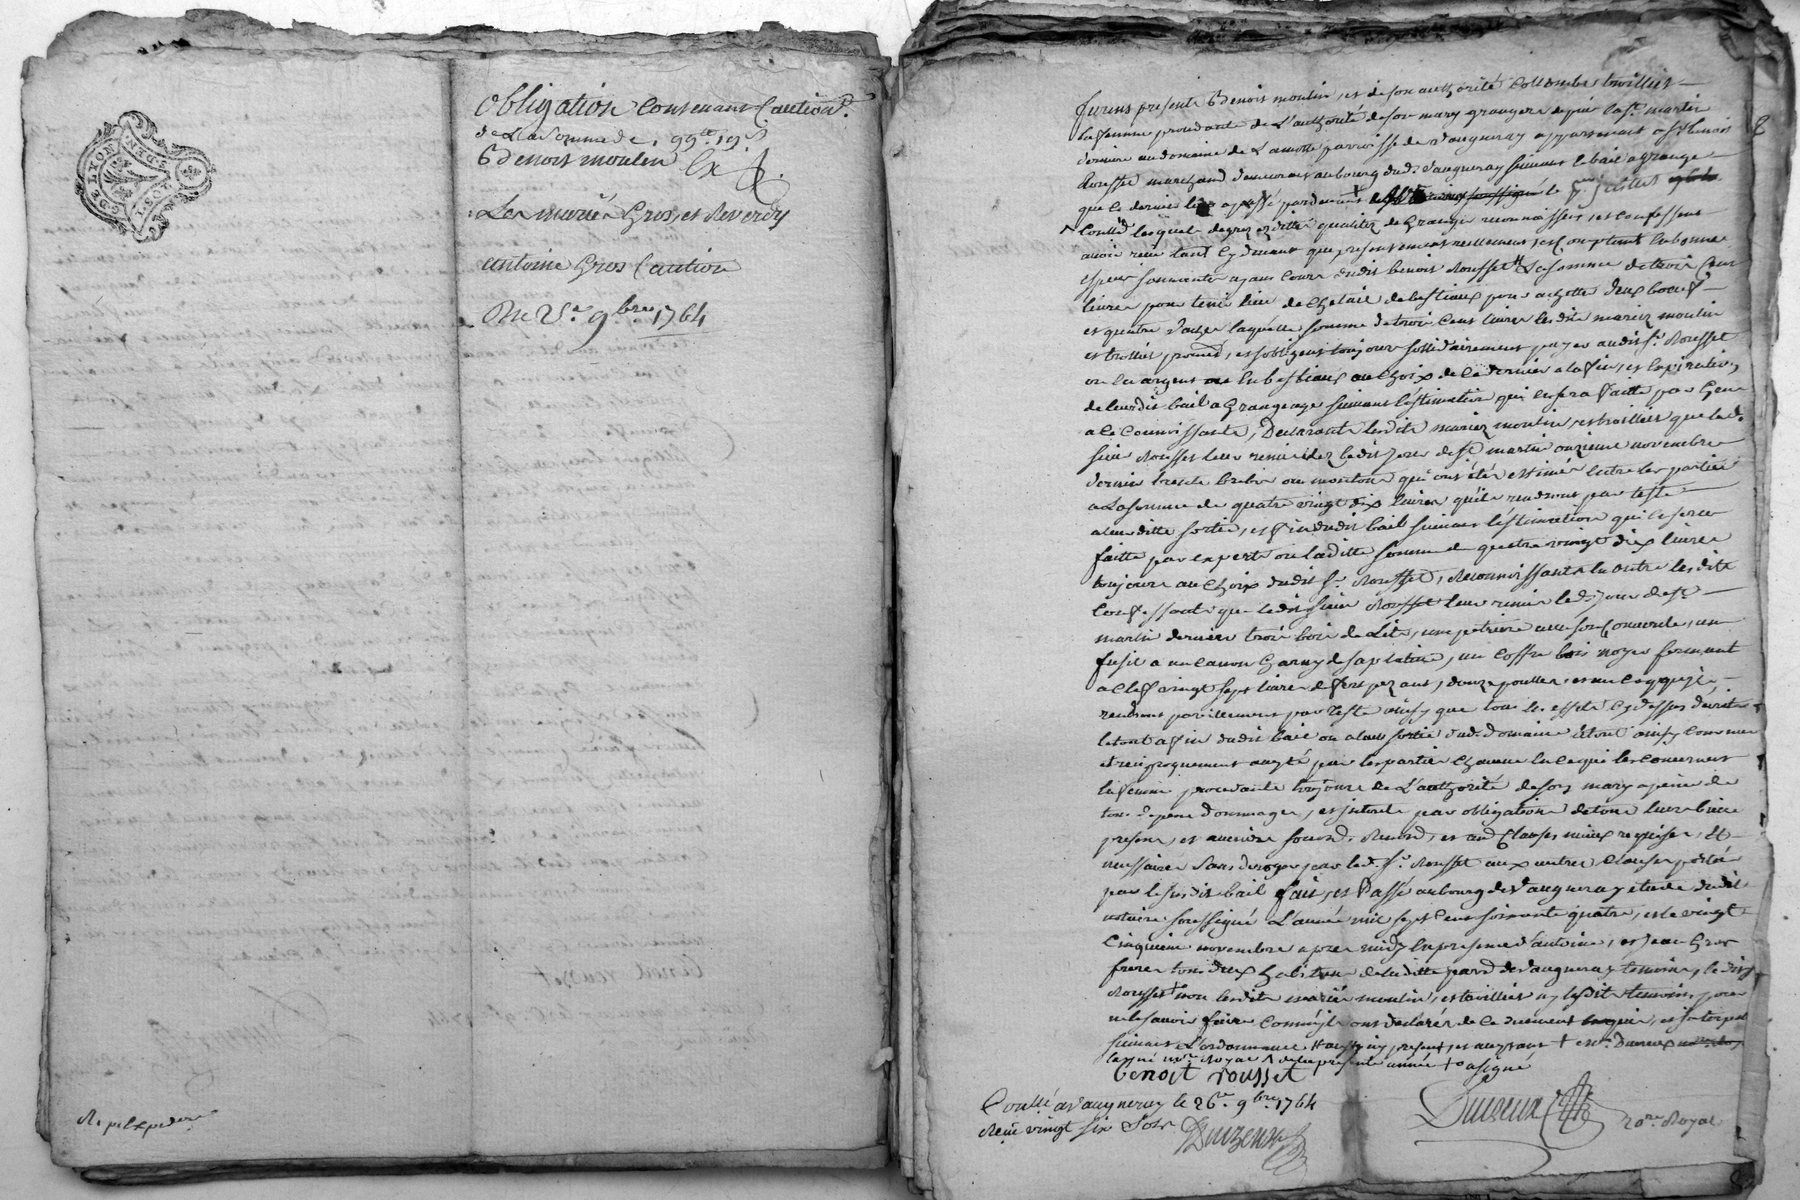 GEN. DE LYON
obligation Contenant Caution.
de La Somme de. 99lt 19s
Benoit moulin
Les mariés Gros, et Reverdy
antoine Gros Caution
Du 25e 9bre 1764
furent presents Benoit moulin, et de son authorité Collombe
la femme procedante de L'authorité de son mary grangers depuis la St. martin
derniere au domaine de Lamotte parroisse de vaugneray appartenant a Sr. benoit
Rousset marchand demeurant au bourg dud. vaugneray suivant le bail a grange
que ce dernier leur a passé pardevant le juillet
lesquels de grez esditte qualitez de Granger reconnoissent, et confessent
avoir reçu tant cy devant que presentement reellement, et Comptant en bonnes
especes sonnantes ayant cours dudit benoit Rousset La somme de trois Cent
livres pour tenir lieu de Chetail de bestiaux pour achetter deux boeufs
et quatre vaches laquelle somme de trois Cent livres lesdits mariez moulin
et promet, et s'obligent toujours sollidairement payer audit Sr. Rousset
ou en argent ou en bestiaux au Choix de ce dernier a la fin, et Expiration
de leurdit bail a Grangeage suivant l'estimation qui en sera faitte par Gens
a ce Connoissants, Declarants lesdits mariez moulin, et que led.
sieur Rousset leur remis le dit jour de St. martin onzieme novembre
dernier trente brebis ou moutons qui ont étés estimés entre les parties
a La somme de quatre vingt dix livres qu'ils rendront par teste
a leurditte sortie, et fin dudit bail suivant l'estimation qui en sera
faitte par experts ou laditte somme de quatre vingt dix livres
toujours au Choix dudit Sr. Rousset, Reconnoissants En outre lesdits
Confessants que ledit sieur Rousset leur remis led. jour de St.
martin dernier trois bois de Lits, une petriere avec son Couvercle, un
fusil a un canon Garny de sa platine, un Coffre bois noyer fermant
a clef vingt sept livres de fert pezant, douze poulles et un Coq qu'ils
rendront pareillement par teste ainsy que tous les effets cy dessus
le tout a fin dudit bail ou a leur sortie dud. domaine Le tout ainsy Convenu
et reciproquement accepté par les parties Chacune en ce qui les concernent
la femme procedante toujours de L'authorité de son mary a peine de
tous depens dommages, et interets par obligation de tous leurs biens
presents, et avenirs soumis. Renond. et aud Clauses mieux requises, Et
necessaires sans deroger par led. Sr. Rousset aux autres Clauses portées
par le susdit bail fait, et Passé au bourg de vaugneray etude dudit
notaire soussigné L'année mil sept Cent soixante quatre, et le vingt
Cinquieme novembre apres midy En presence d'antoine, et Jean Gros
freres tous deux habitans de laditte parr. de vaugneray temoins, ledit
Rousset non lesdits mariés moulin, et ny lesdits temoins pour
ne savoir faire Comm'ils ont declarés de ce duement enquis, et interpellés
suivant L'ordonnance
benoit rousset
Conllé a vaugneray le 26e. 9bre. 1764
Reçu vingt six Sols
nore. Royal